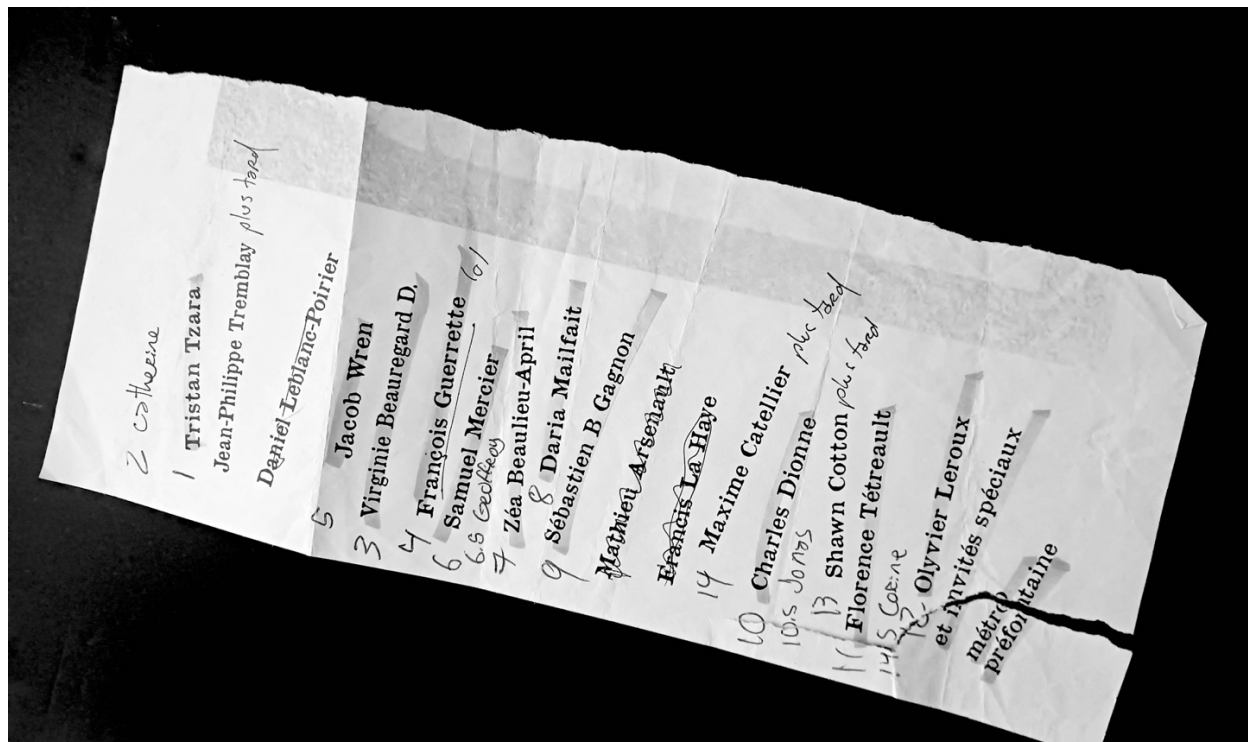 2 catherine
1 Tristan Tzara
Jean-Philippe Tremblay plus tard
Daniel Leblanc-Poirier
5 Jacob Wren
3 Virginie Beauregard D.
4 François Guerrette (o)
6 Samuel Mercier
6.5 Geoffroy
7 Zéa Beaulieu-April
8 Daria Mailfait
9 Sébastien B Gagnon
Mathieu Arsenault
Francis La Haye
14 Maxime Catellier plus tard
10 Charles Dionne
10.5 Jonas
13 Shawn Cotton plus tard
11 Florence Tétreault
14.5 Corine
12 Olyvier Leroux
et invités spéciaux
métro
préfontaine